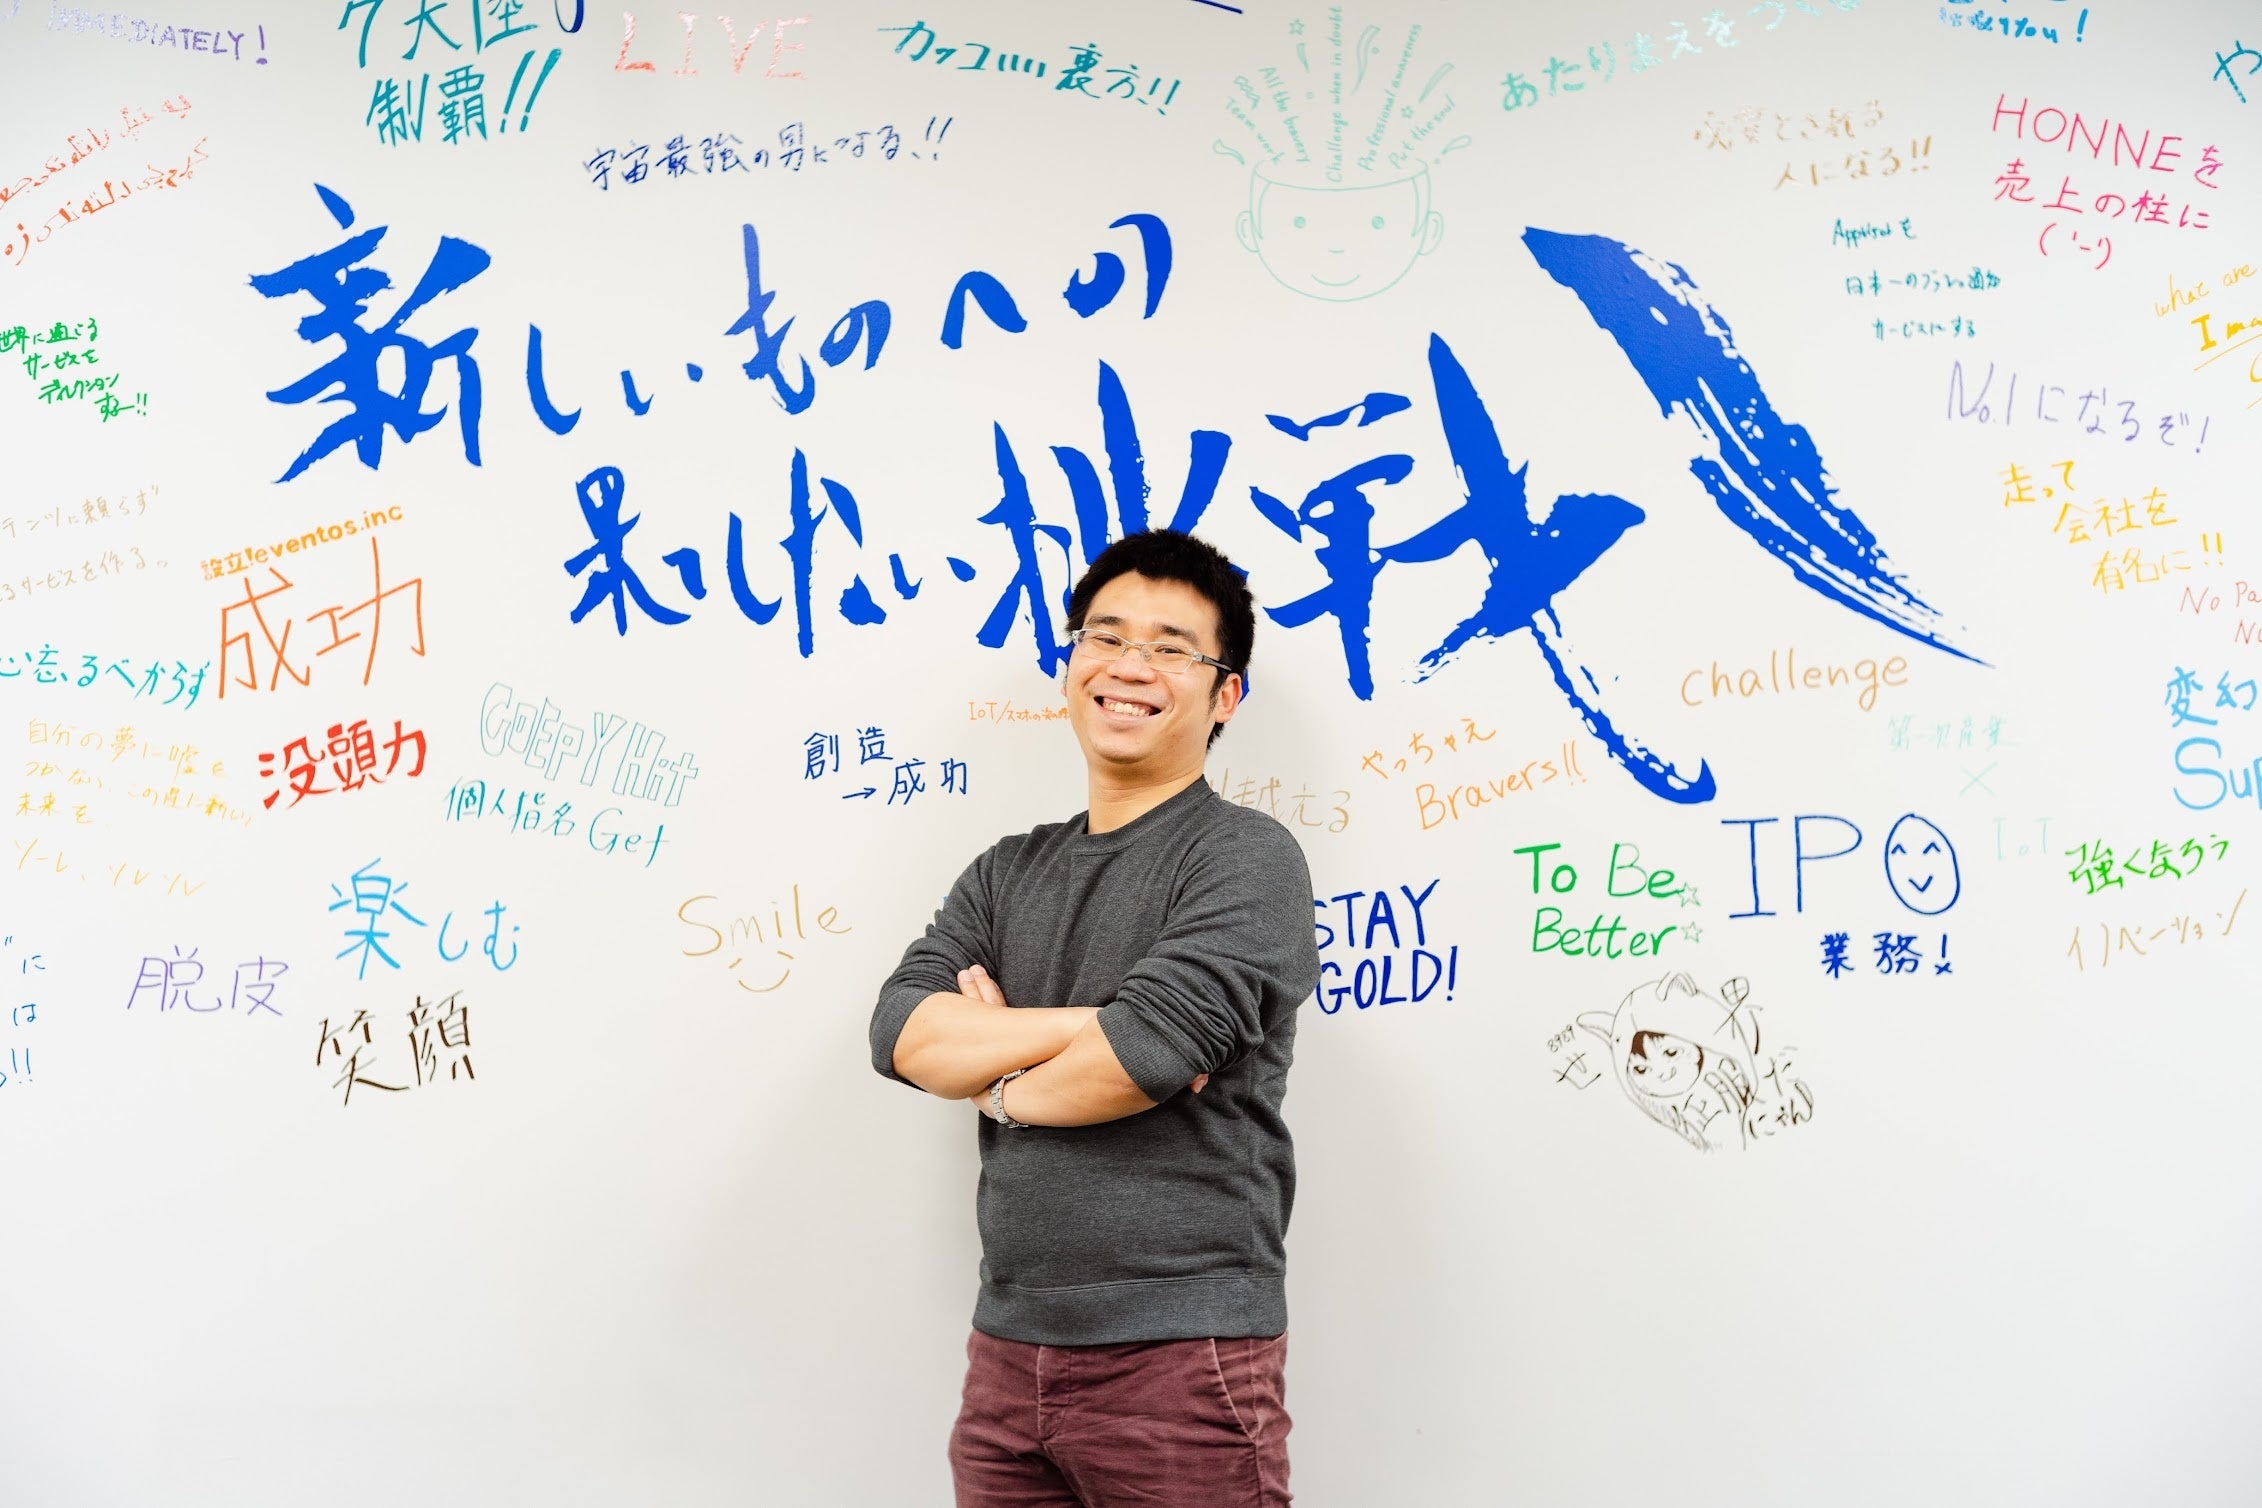 IMMEDIATELY!
7大陸
制覇!!
LIVE
カッコいい裏方!!
宇宙最強の男になる!!
Team work
All the bravery
Challenge when in doubt
Professional awareness
Put the soul
あたり まえを
必要とされる
人になる!!
HONNEを
売上の柱に
新しいものへの
果てしない挑戦
世界に通じる
サービスを
ディレクション
するー!!
日本一の
サービスにする
what are
No.1になるぞ!
走って
会社を
有名に!!
テンツに頼らず
るサービスを作る。
設立!eventos.inc
成功
忘るべからず
自分の夢に嘘を
つかない、この星に新しい
未来を
ソーレ、ソレソレ
没頭力
GOEPY Hit
個人指名 Get
創造
→成功
IoT/スマホの次の
越える
やっちゃえ
Bravers!!
challenge
変幻
Sup
第一次産業
×
IoT
IPO
業務!
強くなろう
イノベーション
To Be
Better
STAY
GOLD!
Smile
楽しむ
脱皮
笑顔
に
は
!!
8989
世界
征服だ
にゃん